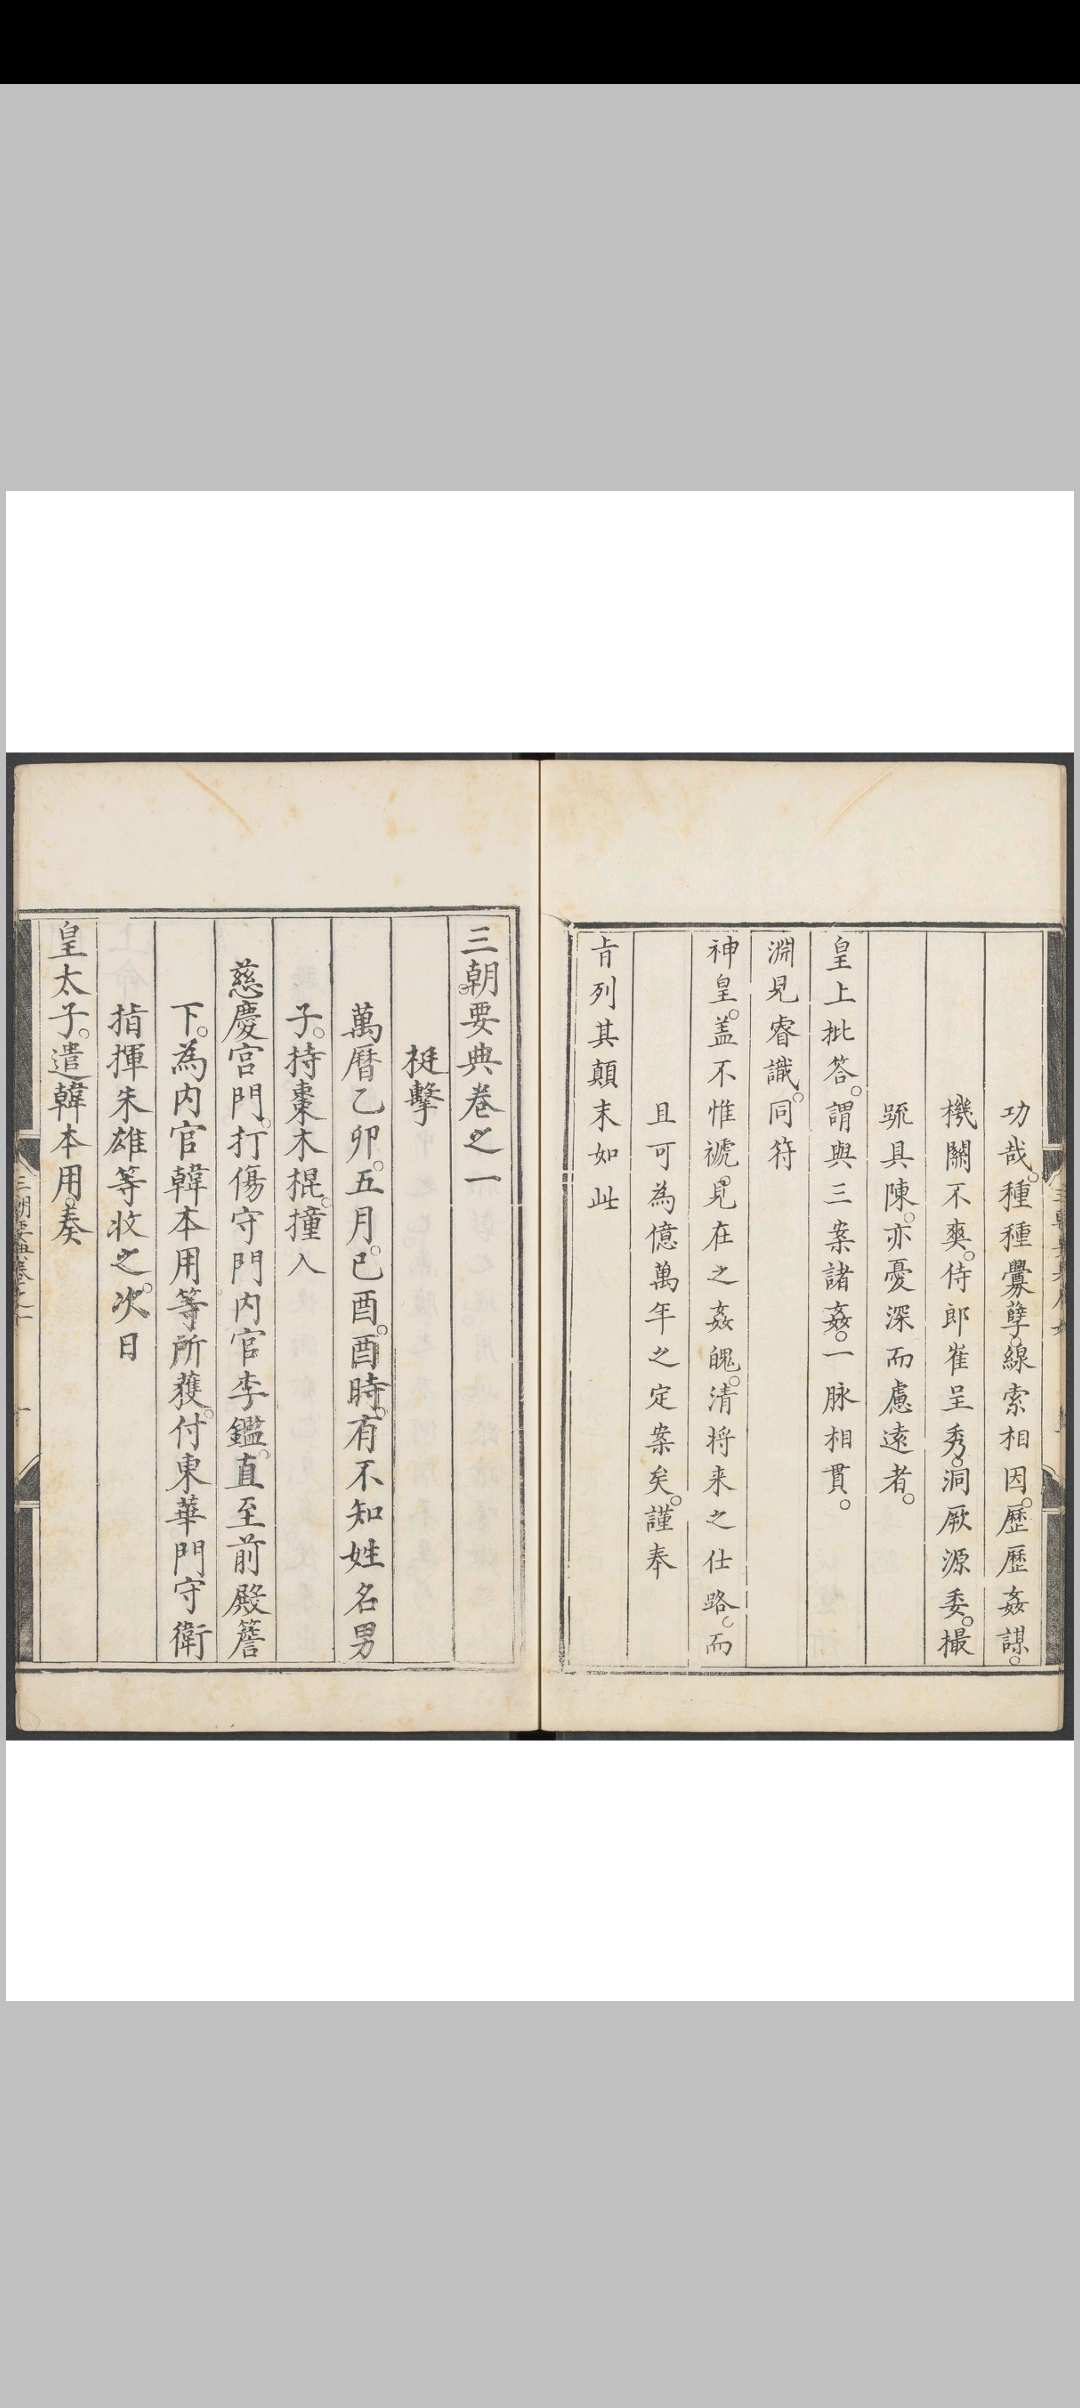 功哉種種釁孽線索相因歷歷姦謀
機關不爽侍郎崔呈秀洞厥源委撮
䟽具陳亦憂深而慮遠者
皇上批答謂與三案諸姦一脉相貫
淵見睿識同符
神皇蓋不惟褫見在之姦魄清将来之仕路而
且可為億萬年之定案矣謹奉
㫖列其顛末如此
三朝要典卷之一
梃擊
萬曆乙卯五月己酉酉時有不知姓名男
子持棗木棍撞入
慈慶宮門打傷守門内官李鑑直至前殿簷
下為内官韓本用等所獲付東華門守衛
指揮朱雄等收之次日
皇太子遣韓本用奏
三朝要典卷之一